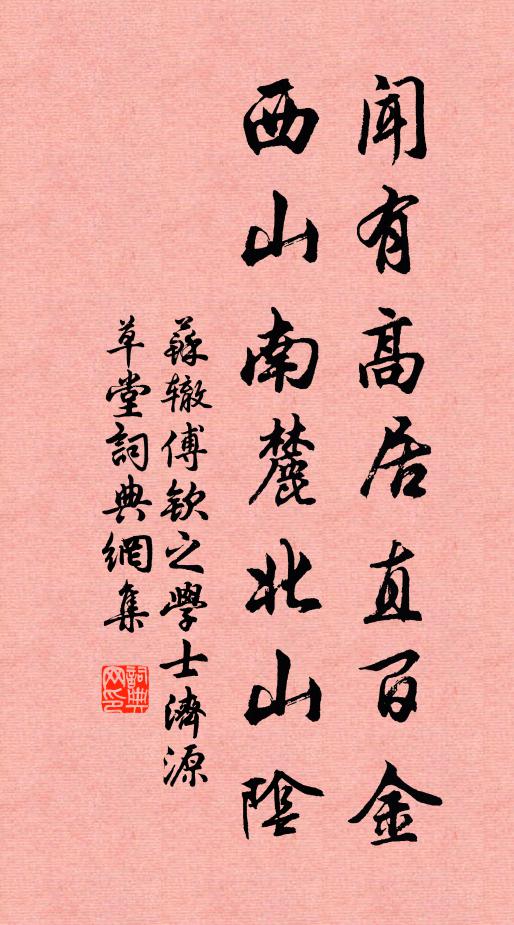 聞有高居直百金
西山南麓北山陰
蘇轍傅欽之學士濟源
草堂詞典網集
詞典
网印